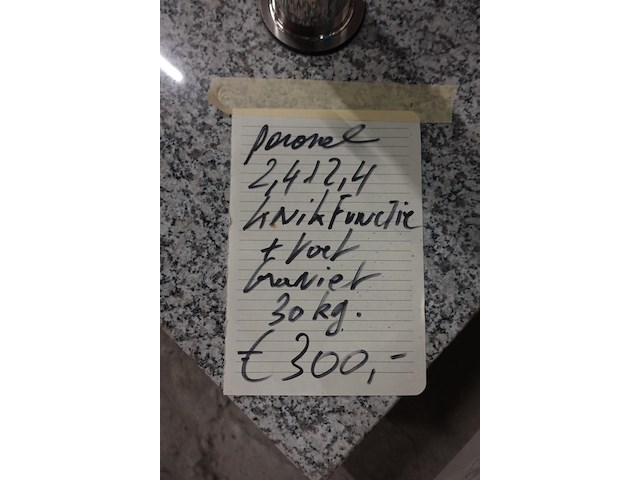 Parasol
2,4 x 2,4
knikfunctie
+ voet
Graniet
30 kg.
€ 300,-